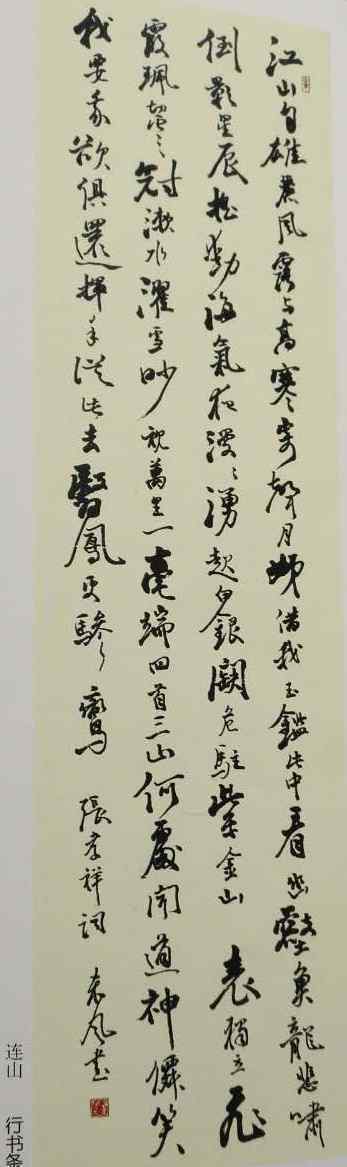 江山自雄麗風露与高寒寄聲月姊借我玉鑑此中看幽壑魚龍悲嘯
倒影星辰摇動海氣夜漫〻湧起白銀闕危駐紫金山 表獨立飛
霞珮冠漱冰濯雪眇視萬里一毫端回首三山何處聞道神僊笑
我要我欲俱還揮手從此去翳鳳更驂鸞 張孝祥詞 风书
连山 行书条